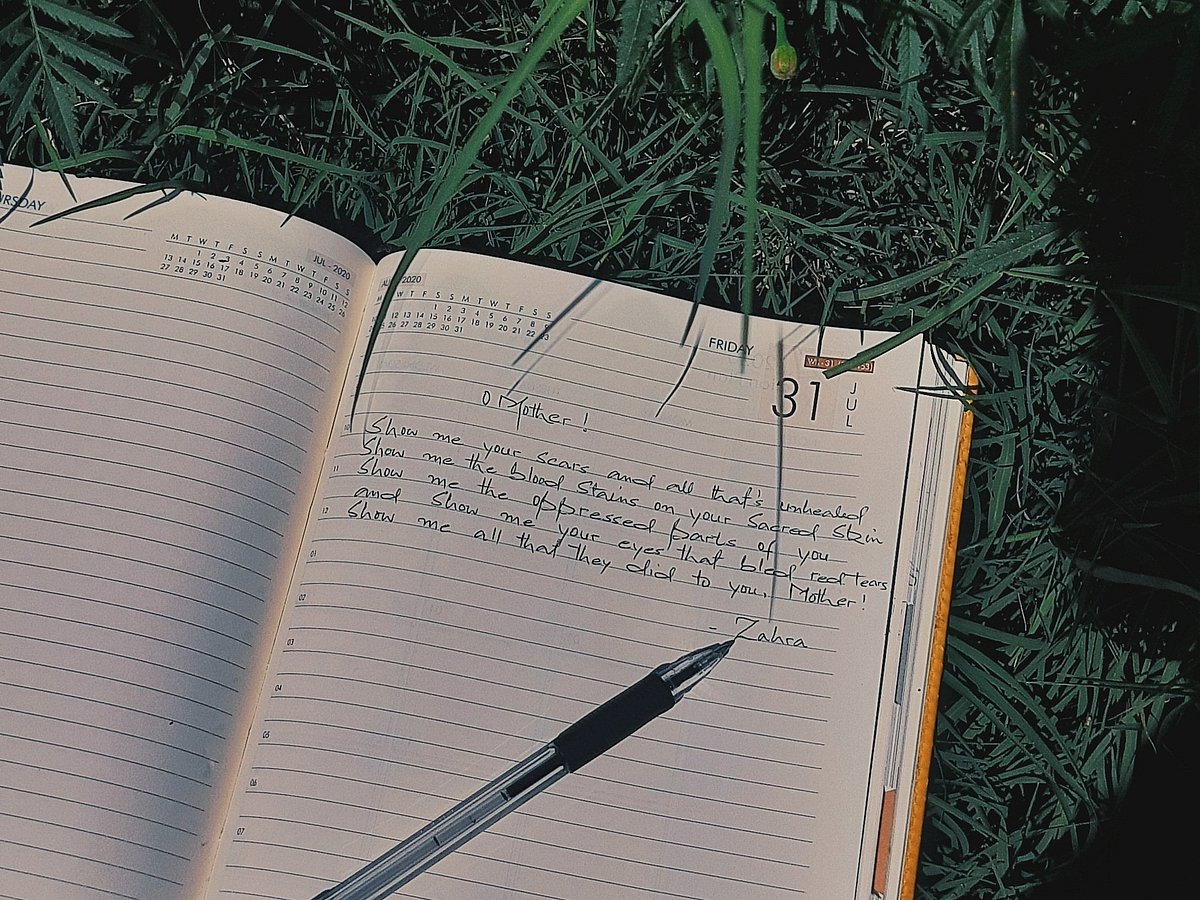 URSDAY
JUL - 2020
M T W T F S S M T W T F S S
1 2 3 4 5 6 7 8 9 10 11 12
13 14 15 16 17 18 19 20 21 22 23 24 25 26
27 28 29 30 31
2020
W T F S S M T W T F S S
1 2 3 4 5 6 7 8 9
12 13 14 15 16 17 18 19 20 21 22 23
26 27 28 29 30 31
FRIDAY
31
JUL
O Mother!
Show me your scars and all that's unhealed
Show me the blood stains on your sacred skin
Show me the oppressed parts of you
and show me your eyes that bled red tears
Show me all that they did to you, Mother!
- Zahra
10
11
12
01
02
03
04
05
06
07